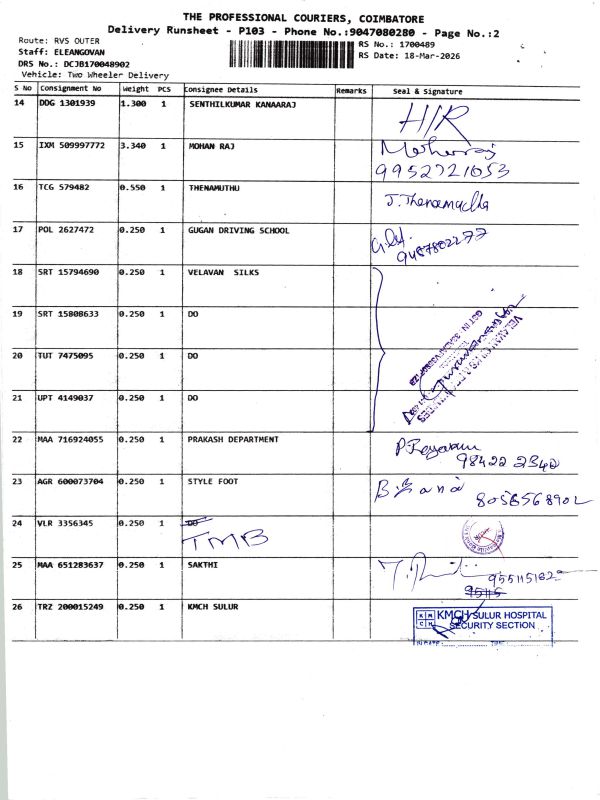 THE PROFESSIONAL COURIERS, COIMBATORE
Delivery Runsheet - P103 - Phone No.:9047080280 - Page No.:2
Route: RVS OUTER
RS No.: 1700489
Staff: ELEANGOVAN
RS Date: 18-Mar-2026
DRS No.: DCJB170048902
Vehicle: Two Wheeler Delivery
S No Consignment No Weight PCS Consignee Details Remarks Seal & Signature
14 DDG 1301939 1.300 1 SENTHILKUMAR KANAARAJ H/R
15 IXM 509997772 3.340 1 MOHAN RAJ Mohanraj
9952721053
16 TCG 579482 0.550 1 THENAMUTHU J.Thenamutha
17 POL 2627472 0.250 1 GUGAN DRIVING SCHOOL
9487802277
18 SRT 15794690 0.250 1 VELAVAN SILKS
19 SRT 15808633 0.250 1 DO
20 TUT 7475095 0.250 1 DO
21 UPT 4149037 0.250 1 DO
22 MAA 716924055 0.250 1 PRAKASH DEPARTMENT
98422 2340
23 AGR 600073704 0.250 1 STYLE FOOT
8056568902
24 VLR 3356345 0.250 1 DO
TMB
25 MAA 651283637 0.250 1 SAKTHI
9551151622
95115
26 TRZ 200015249 0.250 1 KMCH SULUR
KMCH SULUR HOSPITAL
SECURITY SECTION